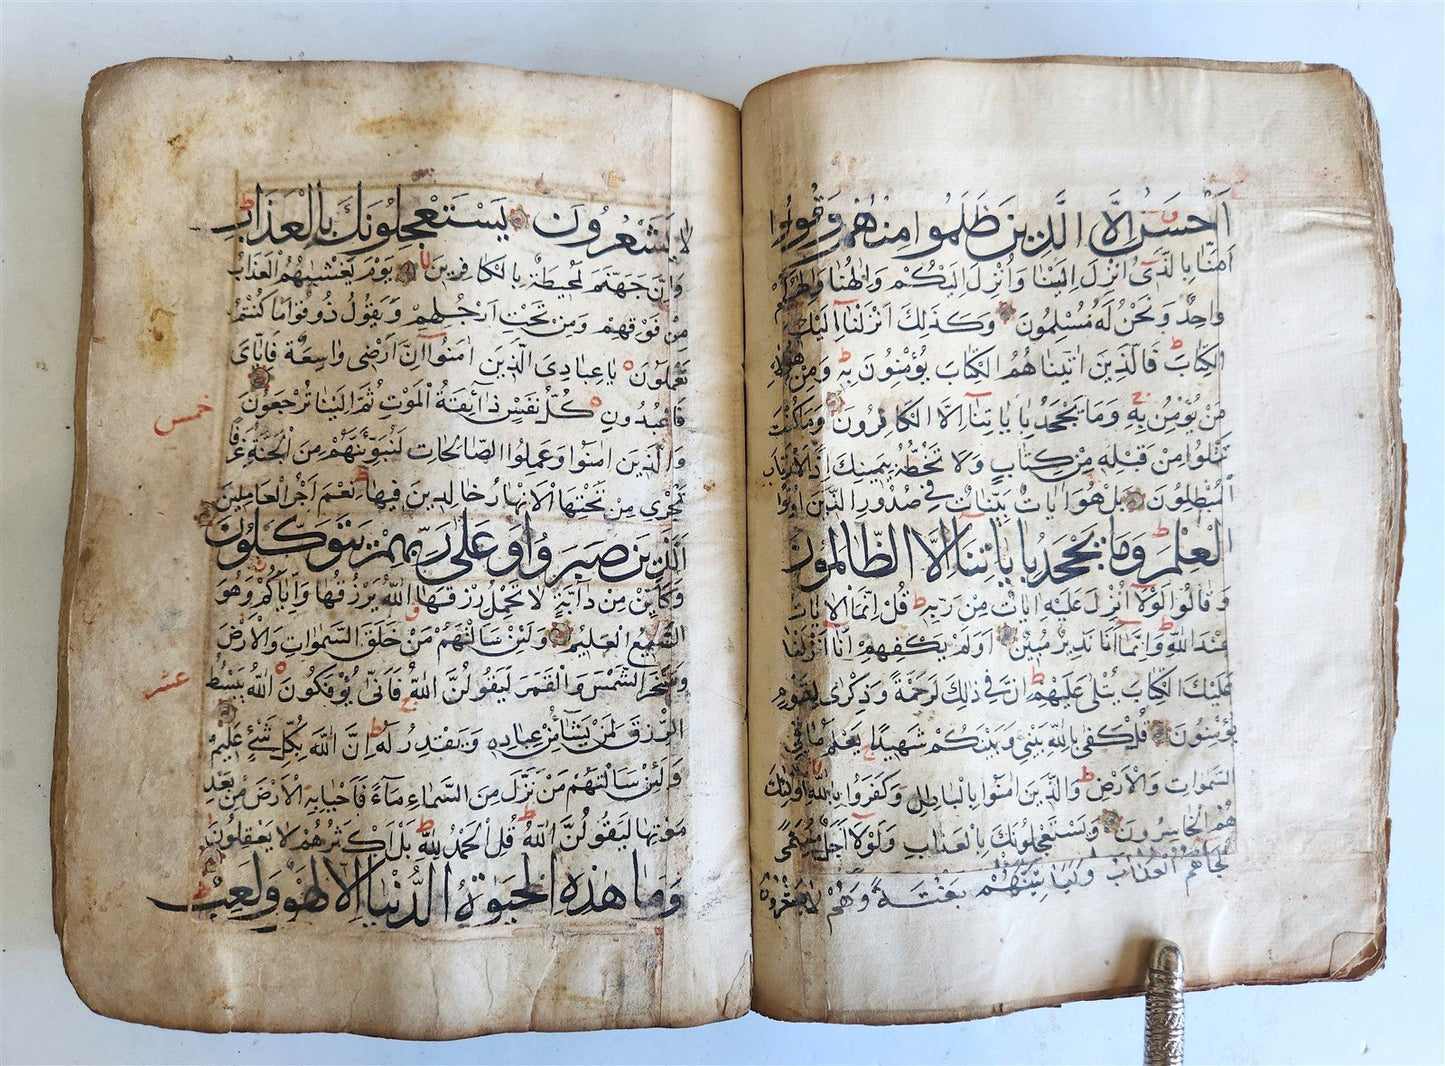 اَحْسَنُ اِلَّا الَّذِينَ ظَلَمُوا مِنْهُمْ وَقُولُوا
اٰمَنَّا بِالَّذِى اُنْزِلَ اِلَيْنَا وَاُنْزِلَ اِلَيْكُمْ وَاِلٰهُنَا وَاِلٰهُكُمْ
وَاحِدٌ وَنَحْنُ لَهُ مُسْلِمُونَ وَكَذٰلِكَ اَنْزَلْنَا اِلَيْكَ
الْكِتَابَ فَالَّذِينَ اٰتَيْنَاهُمُ الْكِتَابَ يُؤْمِنُونَ بِهِ وَمِنْ هٰؤُلَاءِ
مَنْ يُؤْمِنُ بِهِ وَمَا يَجْحَدُ بِاٰيَاتِنَا اِلَّا الْكَافِرُونَ وَمَا كُنْتَ
تَتْلُوا مِنْ قَبْلِهِ مِنْ كِتَابٍ وَلَا تَخُطُّهُ بِيَمِينِكَ اِذًا لَارْتَابَ
الْمُبْطِلُونَ بَلْ هُوَ اٰيَاتٌ بَيِّنَاتٌ فِي صُدُورِ الَّذِينَ اُوتُوا
الْعِلْمَ وَمَا يَجْحَدُ بِاٰيَاتِنَا اِلَّا الظَّالِمُونَ
وَقَالُوا لَوْلَا اُنْزِلَ عَلَيْهِ اٰيَاتٌ مِنْ رَبِّهِ قُلْ اِنَّمَا الْاٰيَاتُ
عِنْدَ اللّٰهِ وَاِنَّمَا اَنَا نَذِيرٌ مُبِينٌ اَوَلَمْ يَكْفِهِمْ اَنَّا اَنْزَلْنَا
عَلَيْكَ الْكِتَابَ يُتْلٰى عَلَيْهِمْ اِنَّ فِي ذٰلِكَ لَرَحْمَةً وَذِكْرٰى لِقَوْمٍ
يُؤْمِنُونَ قُلْ كَفٰى بِاللّٰهِ بَيْنِي وَبَيْنَكُمْ شَهِيدًا يَعْلَمُ مَا فِي
السَّمٰوَاتِ وَالْاَرْضِ وَالَّذِينَ اٰمَنُوا بِالْبَاطِلِ وَكَفَرُوا بِاللّٰهِ اُولٰئِكَ
هُمُ الْخَاسِرُونَ وَيَسْتَعْجِلُونَكَ بِالْعَذَابِ وَلَوْلَا اَجَلٌ مُسَمًّى
لَجَاءَهُمُ الْعَذَابُ وَلَيَاْتِيَنَّهُمْ بَغْتَةً وَهُمْ لَا يَشْعُرُونَ
لَا يَشْعُرُونَ يَسْتَعْجِلُونَكَ بِالْعَذَابِ
وَاِنَّ جَهَنَّمَ لَمُحِيطَةٌ بِالْكَافِرِينَ يَوْمَ يَغْشٰيهُمُ الْعَذَابُ
مِنْ فَوْقِهِمْ وَمِنْ تَحْتِ اَرْجُلِهِمْ وَيَقُولُ ذُوقُوا مَا كُنْتُمْ
تَعْمَلُونَ يَا عِبَادِيَ الَّذِينَ اٰمَنُوا اِنَّ اَرْضِى وَاسِعَةٌ فَاِيَّايَ
فَاعْبُدُونِ كُلُّ نَفْسٍ ذَائِقَةُ الْمَوْتِ ثُمَّ اِلَيْنَا تُرْجَعُونَ
خمس
وَالَّذِينَ اٰمَنُوا وَعَمِلُوا الصَّالِحَاتِ لَنُبَوِّئَنَّهُمْ مِنَ الْجَنَّةِ غُرَفًا
تَجْرِي مِنْ تَحْتِهَا الْاَنْهَارُ خَالِدِينَ فِيهَا نِعْمَ اَجْرُ الْعَامِلِينَ
الَّذِينَ صَبَرُوا وَعَلٰى رَبِّهِمْ يَتَوَكَّلُونَ
وَكَاَيِّنْ مِنْ دَابَّةٍ لَا تَحْمِلُ رِزْقَهَا اللّٰهُ يَرْزُقُهَا وَاِيَّاكُمْ وَهُوَ
السَّمِيعُ الْعَلِيمُ وَلَئِنْ سَاَلْتَهُمْ مَنْ خَلَقَ السَّمٰوَاتِ وَالْاَرْضَ
وَسَخَّرَ الشَّمْسَ وَالْقَمَرَ لَيَقُولُنَّ اللّٰهُ فَاَنّٰى يُؤْفَكُونَ اللّٰهُ يَبْسُطُ
عشر
الرِّزْقَ لِمَنْ يَشَاءُ مِنْ عِبَادِهِ وَيَقْدِرُ لَهُ اِنَّ اللّٰهَ بِكُلِّ شَيْءٍ عَلِيمٌ
وَلَئِنْ سَاَلْتَهُمْ مَنْ نَزَّلَ مِنَ السَّمَاءِ مَاءً فَاَحْيَا بِهِ الْاَرْضَ مِنْ بَعْدِ
مَوْتِهَا لَيَقُولُنَّ اللّٰهُ قُلِ الْحَمْدُ لِلّٰهِ بَلْ اَكْثَرُهُمْ لَا يَعْقِلُونَ
وَمَا هٰذِهِ الْحَيٰوةُ الدُّنْيَا اِلَّا لَهْوٌ وَلَعِبٌ